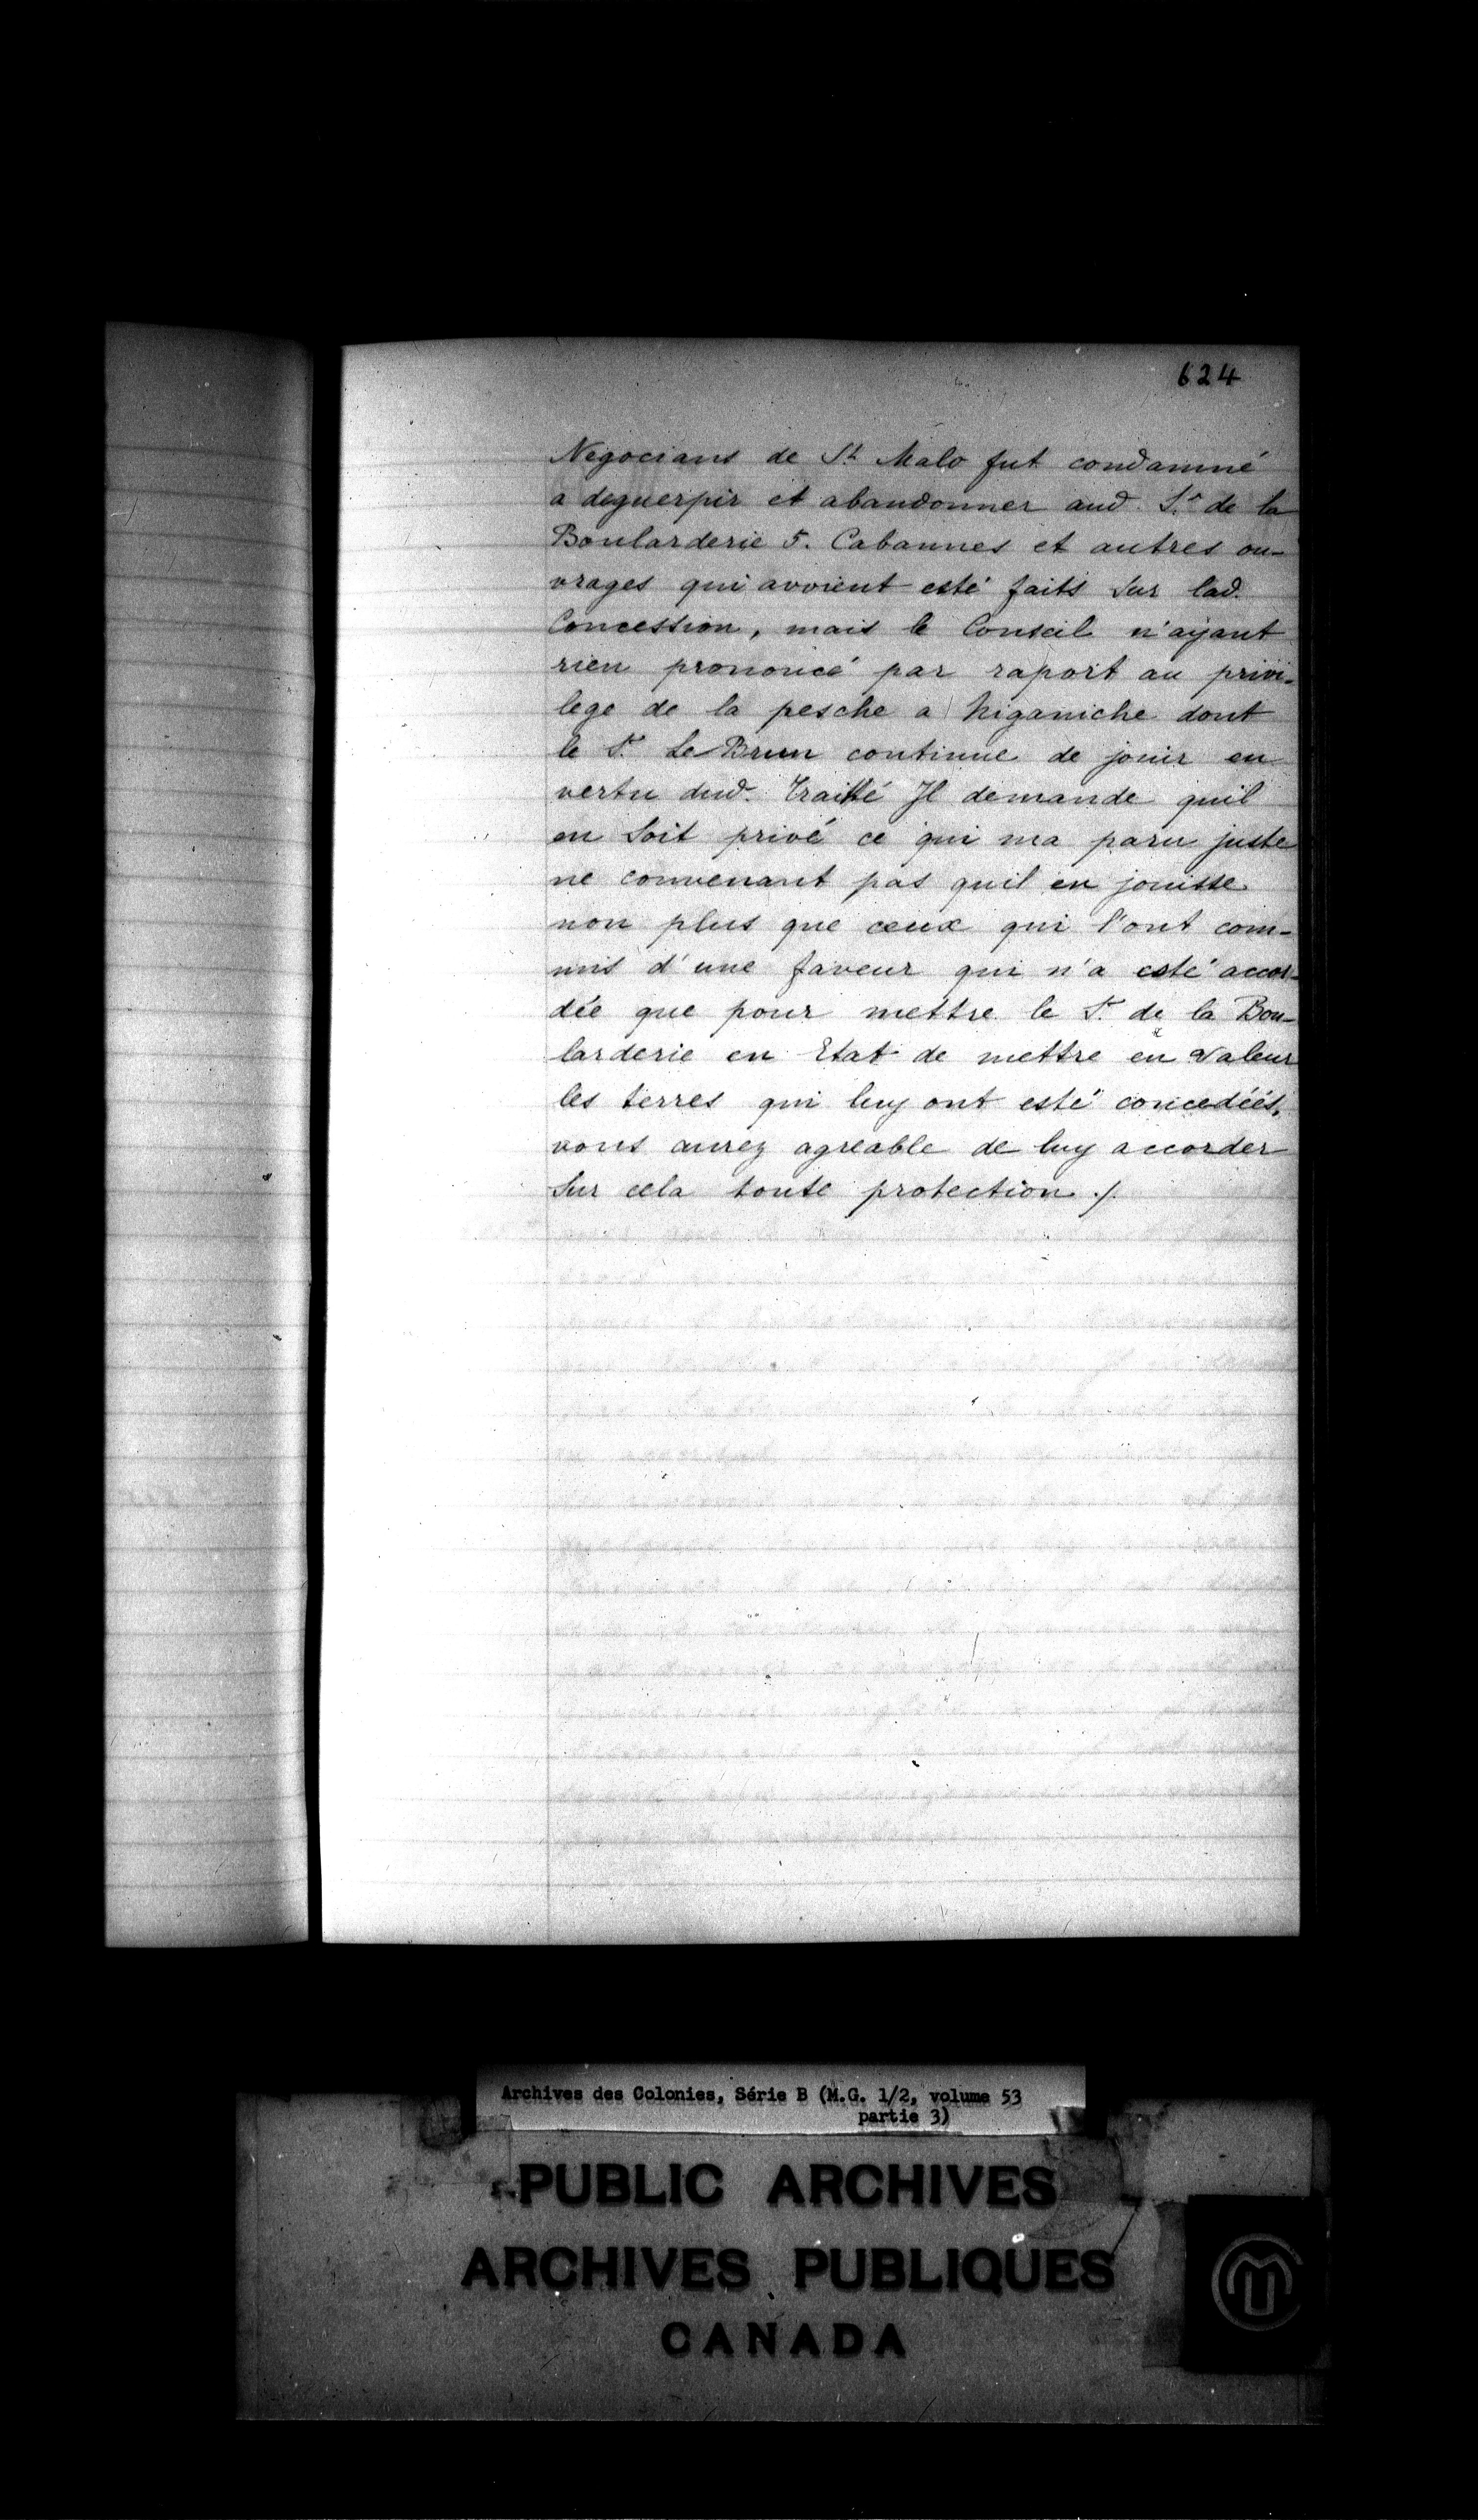 624
Negocians de St Malo fut condamné
a deguerpir et abandonner aud. Sr. de la
Boularderie 5. Cabannes et autres ou-
vrages qui avoient esté faits sur lad.
Concession, mais le Conseil n'ayant
rien prononcé par raport au privi-
lege de la pesche a Niganiche dont
le Sr. Le Brun continue de jouir en
vertu dud. Traitté Il demande quil
en soit privé ce qui ma paru juste
ne convenant pas quil en jouisse
non plus que ceux qui l'ont com-
mis d'une faveur qui n'a esté accor-
dée que pour mettre le Sr. de la Bou-
larderie en Etat de mettre en valeur
les terres qui luy ont esté concedéés,
vous aurez agreable de luy accorder
sur cela toute protection ./.
Archives des Colonies, Série B (M.G. 1/2, volume 53
partie 3)
PUBLIC ARCHIVES
ARCHIVES PUBLIQUES
CANADA